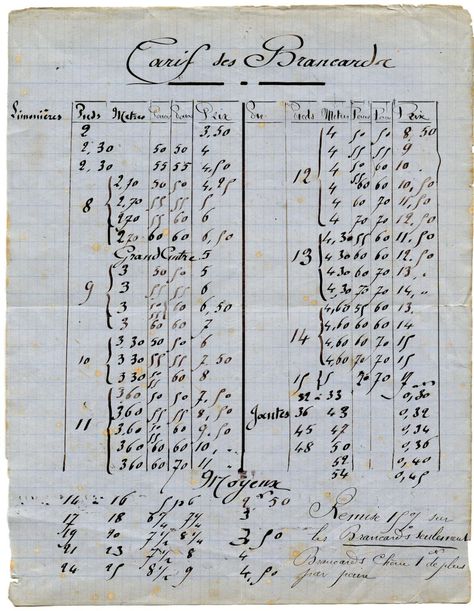 Tarif des Brancards
Limonières Pieds Metres Prix Pieds Metres Prix
2 3,50 4 50 50 8,50
2,30 50 50 4 4 55 50 9
2,30 55 55 4,50 4 50 60 10
8 2,70 50 50 4,25 12 4 60 60 10,50
2,70 55 55 5 4 60 70 11,50
2,70 55 60 6 4 70 70 12,50
2,70 60 60 6,50 4,30 55 60 11,50
Grand Cintre 5 13 4,30 60 60 12,50
9 3 50 50 5 4,30 60 70 13
3 55 55 6 4,30 70 70 14
3 60 6,50 4,60 55 60 13
3 60 60 7 14 4,60 60 60 14
10 3,30 50 50 6 4,60 60 70 15
3,30 55 55 7,50 4,60 70 70 15
3,30 55 60 8 15 5 70 70
11 3,60 50 50 7,50 32 - 33 0,30
3,60 55 55 8,50 Jantes 36 43 0,32
3,60 55 60 9,50 45 47 0,34
3,60 60 60 10 48 50 0,36
3,60 60 70 11 52 0,40
54 0,45
Moyeux
14 - 16 2 50
17 18 6 1/4 7 1/4 3
19 20 7 1/4 3,50
21 23 7 1/2 8 4
24 25 8 1/2 9 4,50
Remise 15% sur
les Brancards seulement
Brancards Chêne 1 de plus
par paire